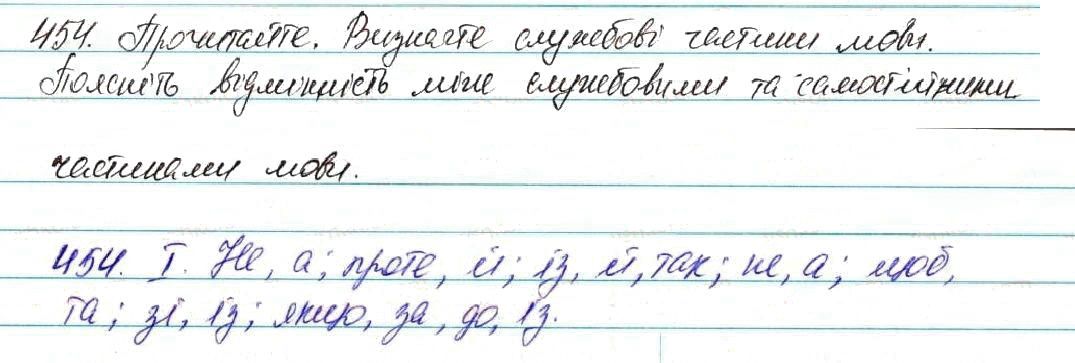 454. Прочитайте. Визначте службові частини мови.
Поясніть відмінність між службовими та самостійними
частинами мови.
454. І. Не, а; проте, й; із, й, так; не, а; щоб,
та; зі, із; якщо, за, до, із.